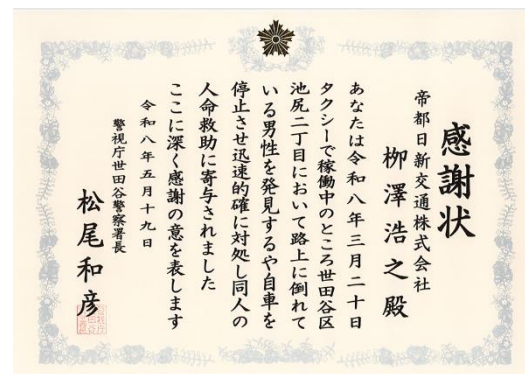 感謝状
帝都日新交通株式会社
栁澤浩之殿
あなたは令和八年三月二十日
タクシーで稼働中のところ世田谷区
池尻二丁目において路上に倒れて
いる男性を発見するや自車を
停止させ迅速的確に対処し同人の
人命救助に寄与されました
ここに深く感謝の意を表します
令和八年五月十九日
警視庁世田谷警察署長
松尾和彦